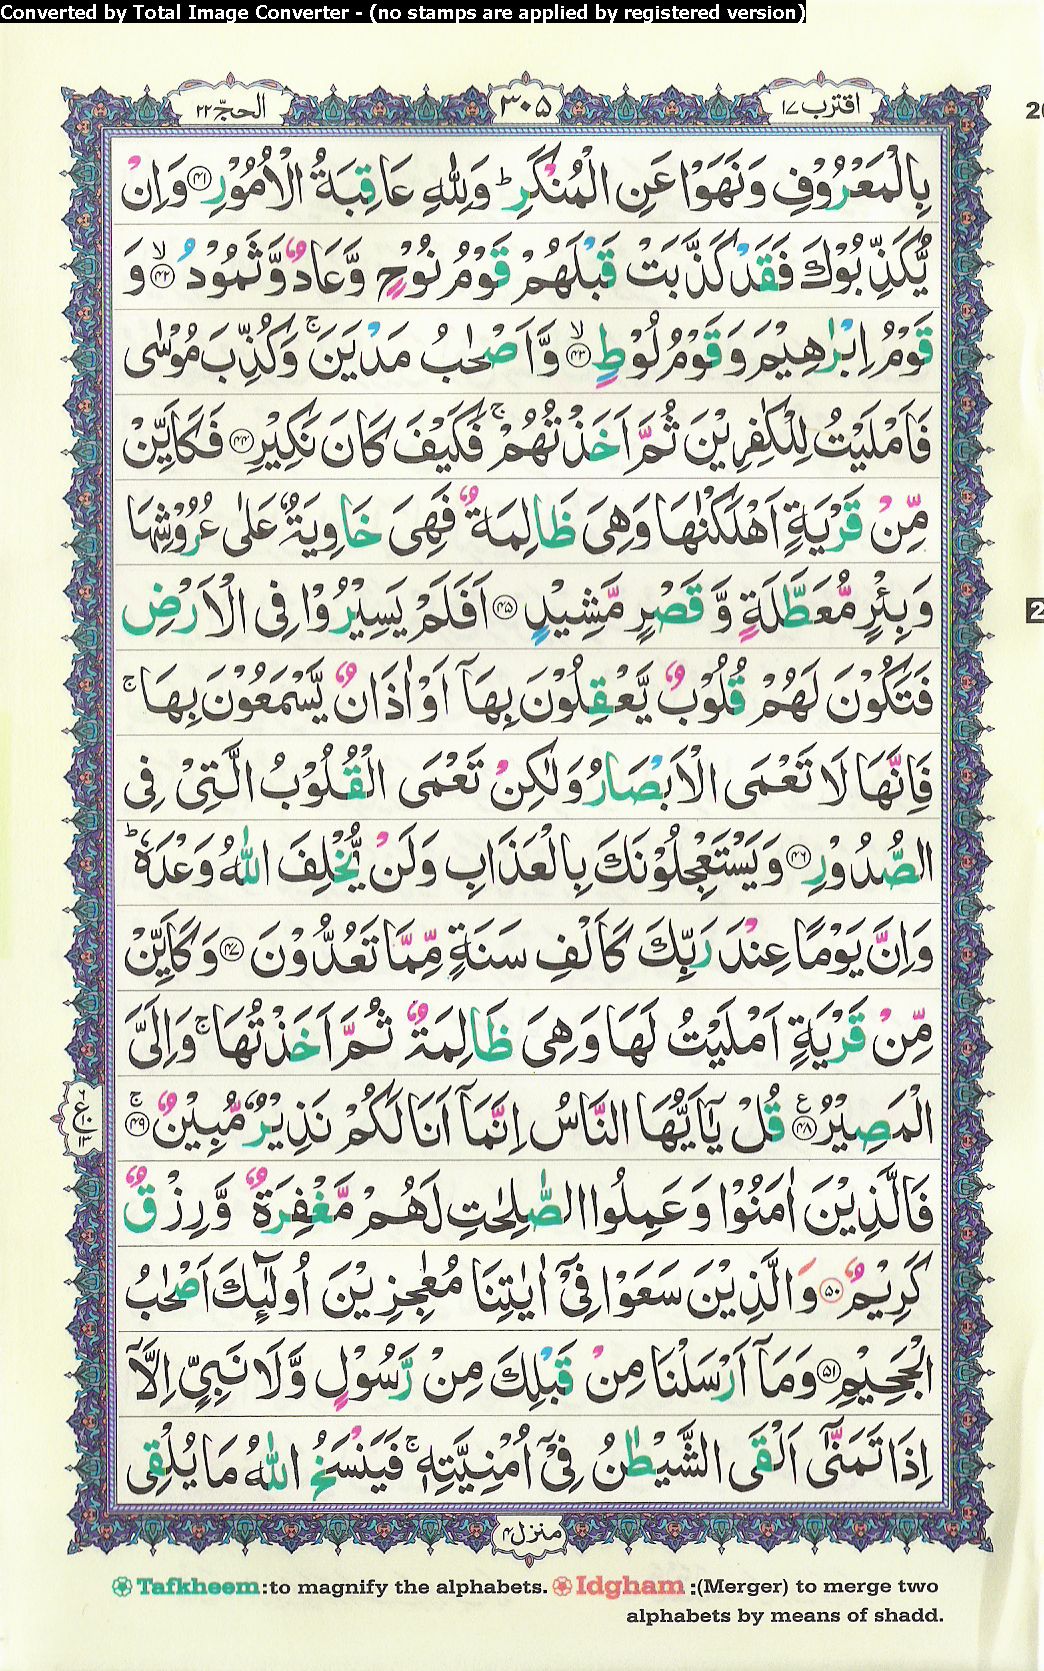 Converted by Total Image Converter - (no stamps are applied by registered version)
اقترب ١٧
٣٠۵
الحجّ ٢٢
بِالْمَعْرُوْفِ وَنَهَوْا عَنِ الْمُنْكَرِ ؕ وَلِلّٰهِ عَاقِبَةُ الْاُمُوْرِ ﴿۴۱﴾ وَاِنْ
يُّكَذِّبُوْكَ فَقَدْ كَذَّبَتْ قَبْلَهُمْ قَوْمُ نُوْحٍ وَّعَادٌ وَّثَمُوْدُ ﴿۴۲﴾ۙ وَ
قَوْمُ اِبْرٰهِيْمَ وَقَوْمُ لُوْطٍ ﴿۴۳﴾ۙ وَّاَصْحٰبُ مَدْيَنَ ۚ وَكُذِّبَ مُوْسٰى
فَاَمْلَيْتُ لِلْكٰفِرِيْنَ ثُمَّ اَخَذْتُهُمْ ۚ فَكَيْفَ كَانَ نَكِيْرِ ﴿۴۴﴾ فَكَاَيِّنْ
مِّنْ قَرْيَةٍ اَهْلَكْنٰهَا وَهِىَ ظَالِمَةٌ فَهِىَ خَاوِيَةٌ عَلٰى عُرُوْشِهَا
وَبِئْرٍ مُّعَطَّلَةٍ وَّقَصْرٍ مَّشِيْدٍ ﴿۴۵﴾ اَفَلَمْ يَسِيْرُوْا فِى الْاَرْضِ
فَتَكُوْنَ لَهُمْ قُلُوْبٌ يَّعْقِلُوْنَ بِهَاۤ اَوْ اٰذَانٌ يَّسْمَعُوْنَ بِهَا ۚ
فَاِنَّهَا لَا تَعْمَى الْاَبْصَارُ وَلٰكِنْ تَعْمَى الْقُلُوْبُ الَّتِىْ فِى
الصُّدُوْرِ ﴿۴۶﴾ وَيَسْتَعْجِلُوْنَكَ بِالْعَذَابِ وَلَنْ يُّخْلِفَ اللّٰهُ وَعْدَهٗ ؕ
وَاِنَّ يَوْمًا عِنْدَ رَبِّكَ كَاَلْفِ سَنَةٍ مِّمَّا تَعُدُّوْنَ ﴿۴۷﴾ وَكَاَيِّنْ
مِّنْ قَرْيَةٍ اَمْلَيْتُ لَهَا وَهِىَ ظَالِمَةٌ ثُمَّ اَخَذْتُهَا ۚ وَاِلَىَّ
الْمَصِيْرُ ﴿۴۸﴾ع قُلْ يٰۤاَيُّهَا النَّاسُ اِنَّمَاۤ اَنَا لَكُمْ نَذِيْرٌ مُّبِيْنٌ ﴿۴۹﴾ۚ
فَالَّذِيْنَ اٰمَنُوْا وَعَمِلُوا الصّٰلِحٰتِ لَهُمْ مَّغْفِرَةٌ وَّرِزْقٌ
كَرِيْمٌ ﴿۵۰﴾ وَالَّذِيْنَ سَعَوْا فِىْۤ اٰيٰتِنَا مُعٰجِزِيْنَ اُولٰٓئِكَ اَصْحٰبُ
الْجَحِيْمِ ﴿۵۱﴾ وَمَاۤ اَرْسَلْنَا مِنْ قَبْلِكَ مِنْ رَّسُوْلٍ وَّلَا نَبِىٍّ اِلَّاۤ
اِذَا تَمَنّٰىۤ اَلْقَى الشَّيْطٰنُ فِىْۤ اُمْنِيَّتِهٖ ۚ فَيَنْسَخُ اللّٰهُ مَا يُلْقِى
منزل ۴
Tafkheem:to magnify the alphabets. Idgham :(Merger) to merge two
alphabets by means of shadd.